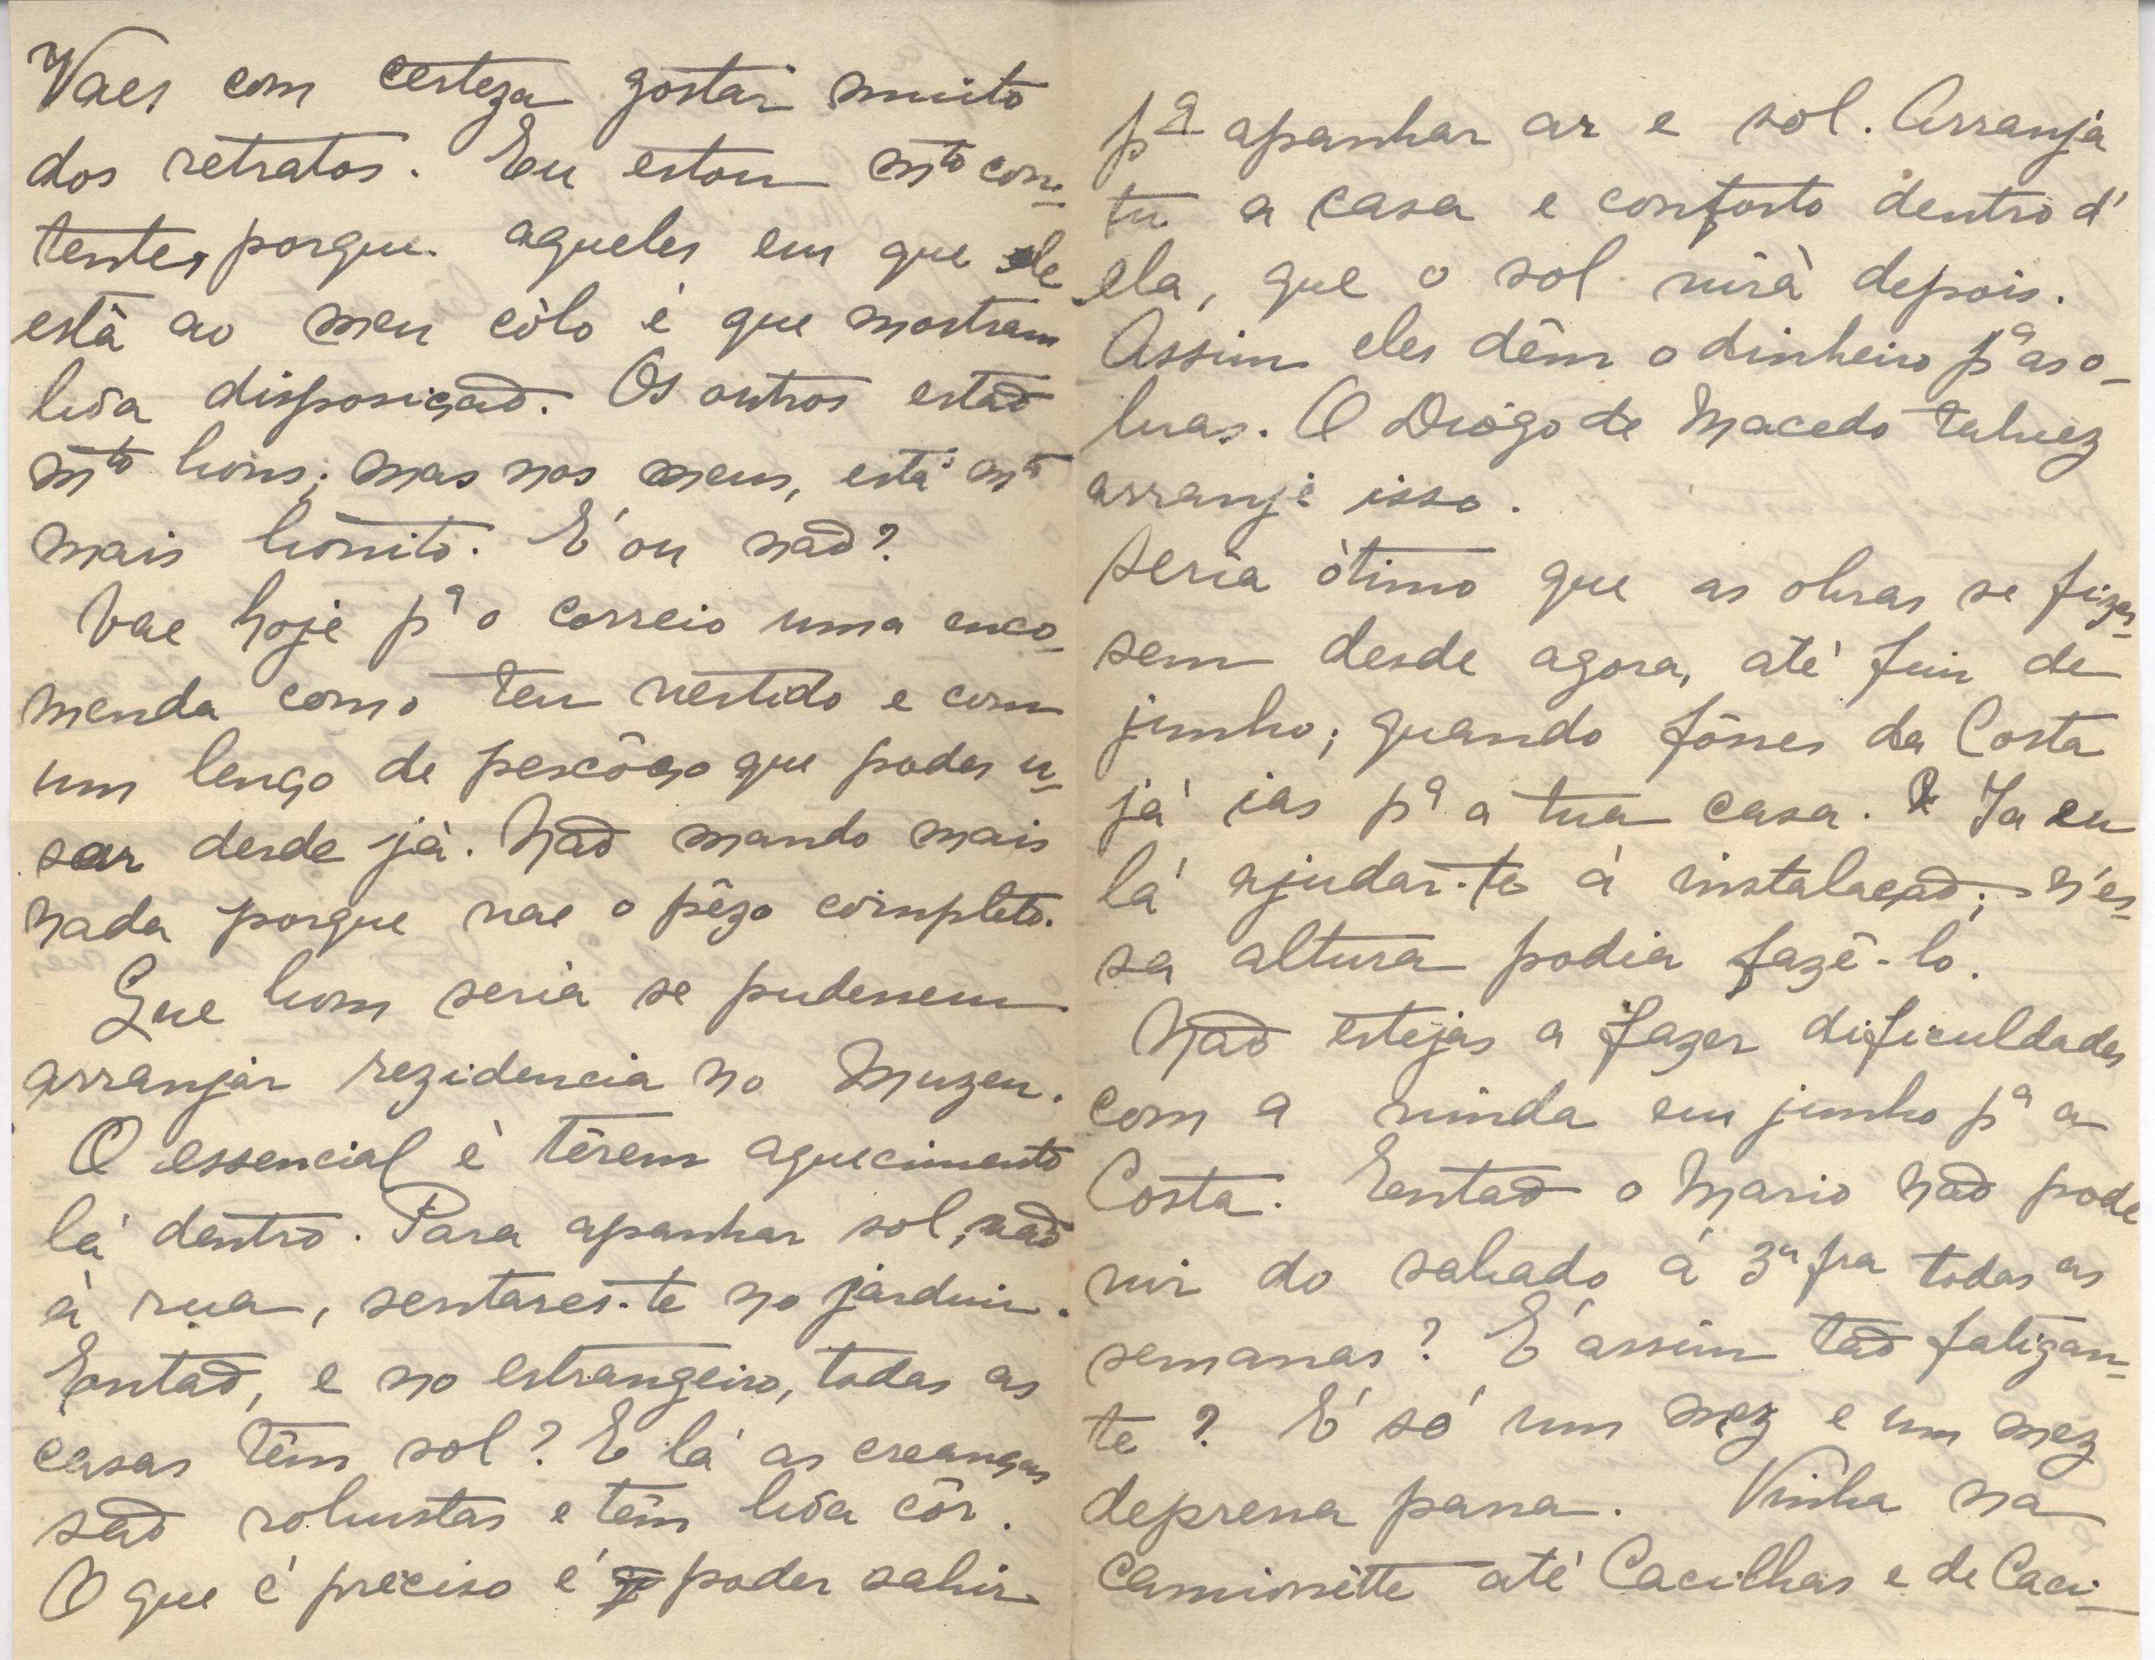 Vaes com certeza gostar muito
dos retratos. Eu estou mto con-
tente, porque aqueles em que ele
está ao meu cólo é que mostram
bôa disposição. Os outros estão
mto bons; mas nos meus, está mto
mais bonito. É ou não?
Vae hoje pª o correio uma enco-
menda com o teu vestido e com
um lenço de pescôço que podes u-
sar desde já. Não mando mais
nada porque vae o pêzo completo.
Que bom seria se pudessem
arranjar rezidencia no Muzeu.
O essencial é têrem aquecimento
lá dentro. Para apanhar sol, vaes
à rua, sentares-te no jardim.
Então, e no estrangeiro, todas as
casas têm sol? E lá as creanças
são robustas e têm bôa côr.
O que é preciso é poder sahir
pª apanhar ar e sol. Arranja
tu a casa e conforto dentro d'
ela, que o sol virá depois.
Assim eles dêm o dinheiro pª as o-
bras. O Diôgo de Macedo talvez
arranje isso.
Seria òtimo que as obras se fizes-
sem desde agora, até fim de
junho; quando fôsses da Costa
já ias pª a tua casa. Ia eu
lá ajudar-te á instalação; n'es-
sa altura podia fazê-lo.
Não estejas a fazer dificuldades
com a vinda em junho pª a
Costa. Então o Mario não pode
vir do sabado á 3ª fra todas as
semanas? É assim tão fatigan-
te? É só um mez e um mez
depressa passa. Vinha na
camionètte até Cacilhas e de Caci-